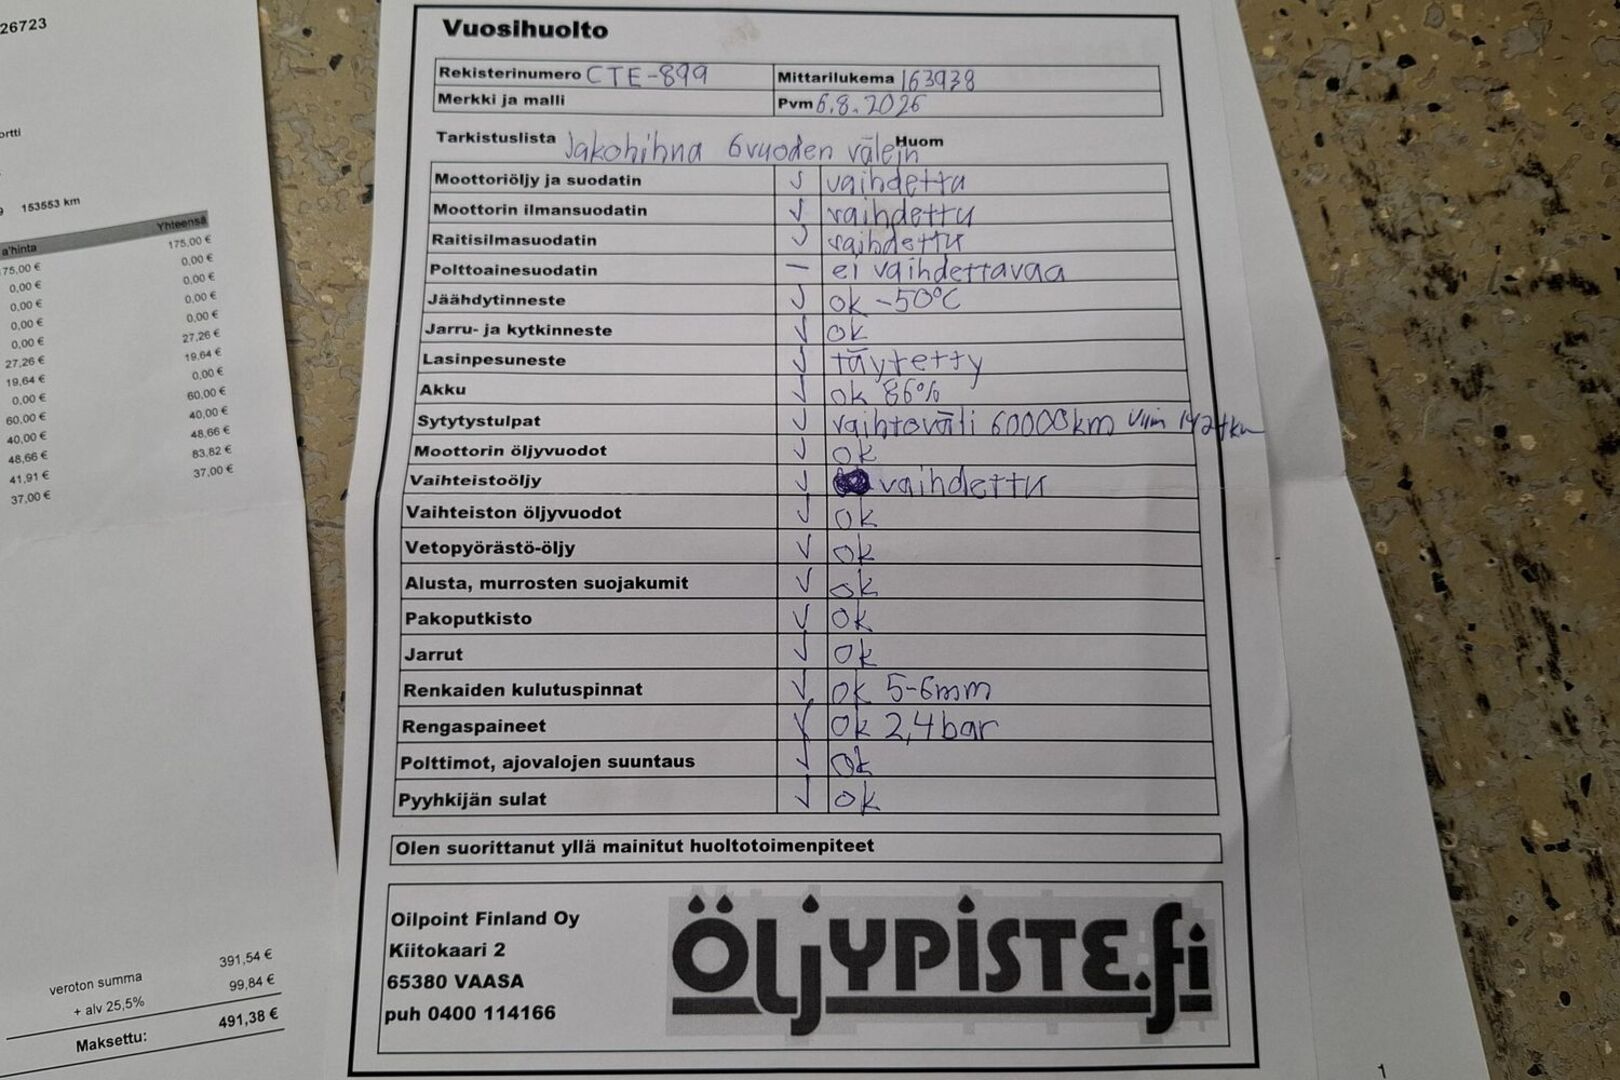 26723
ortti
153553 km
a'hinta Yhteensä
75,00 € 175,00 €
0,00 € 0,00 €
0,00 € 0,00 €
0,00 € 0,00 €
0,00 € 0,00 €
27,26 € 27,26 €
19,64 € 19,64 €
0,00 € 0,00 €
60,00 € 60,00 €
40,00 € 40,00 €
48,66 € 48,66 €
41,91 € 83,82 €
37,00 € 37,00 €
veroton summa 391,54 €
+ alv 25,5% 99,84 €
Maksettu: 491,38 €
Vuosihuolto
Rekisterinumero CTE-899 Mittarilukema 163938
Merkki ja malli Pvm 6.8.2026
Tarkistuslista Jakohihna 6vuoden välein Huom
Moottoriöljy ja suodatin ✓ vaihdettu
Moottorin ilmansuodatin ✓ vaihdettu
Raitisilmasuodatin ✓ vaihdettu
Polttoainesuodatin – ei vaihdettavaa
Jäähdytinneste ✓ ok -50°C
Jarru- ja kytkinneste ✓ ok
Lasinpesuneste ✓ täytetty
Akku ✓ ok 86%
Sytytystulpat ✓ vaihtoväli 60000km viim 142tkm
Moottorin öljyvuodot ✓ ok
Vaihteistoöljy ✓ vaihdettu
Vaihteiston öljyvuodot ✓ ok
Vetopyörästö-öljy ✓ ok
Alusta, murrosten suojakumit ✓ ok
Pakoputkisto ✓ ok
Jarrut ✓ ok
Renkaiden kulutuspinnat ✓ ok 5-6mm
Rengaspaineet ✓ ok 2,4 bar
Polttimot, ajovalojen suuntaus ✓ ok
Pyyhkijän sulat ✓ ok
Olen suorittanut yllä mainitut huoltotoimenpiteet
Oilpoint Finland Oy
Kiitokaari 2
65380 VAASA
puh 0400 114166
ÖLJYPISTE.fi
1